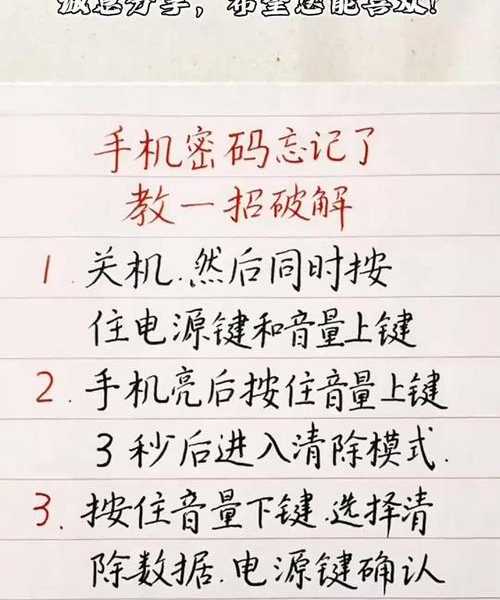 诚意分享，希望您能喜欢！
手机密码忘记了
教一招破解
1.关机.然后同时按
住电源键和音量上键
2.手机亮后按住音量上键
3秒后进入清除模式.
3.按住音量下键.选择清
除数据.电源键确认